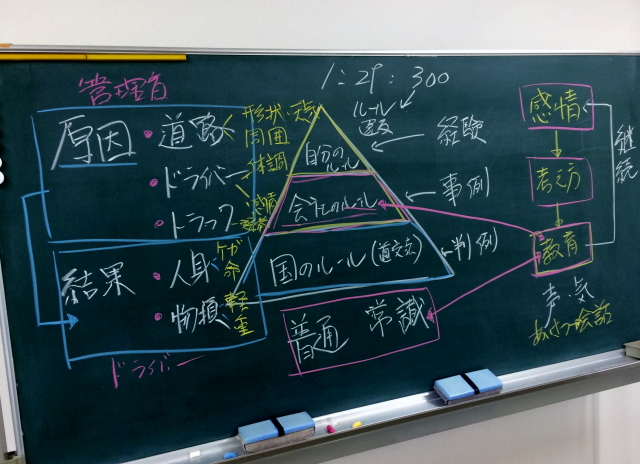 管理者
原因
・道路
・ドライバー
・トラック
形状・天気
周囲
体調
感情
結果
・人身
・物損
ケガ
命
軽
重
ドライバー
1:29:300
ルール
違反
自分の
ルール
会社のルール
国のルール(道交法)
経験
事例
判例
普通 常識
感情
考え方
教育
継続
声・気
あいさつ・会話